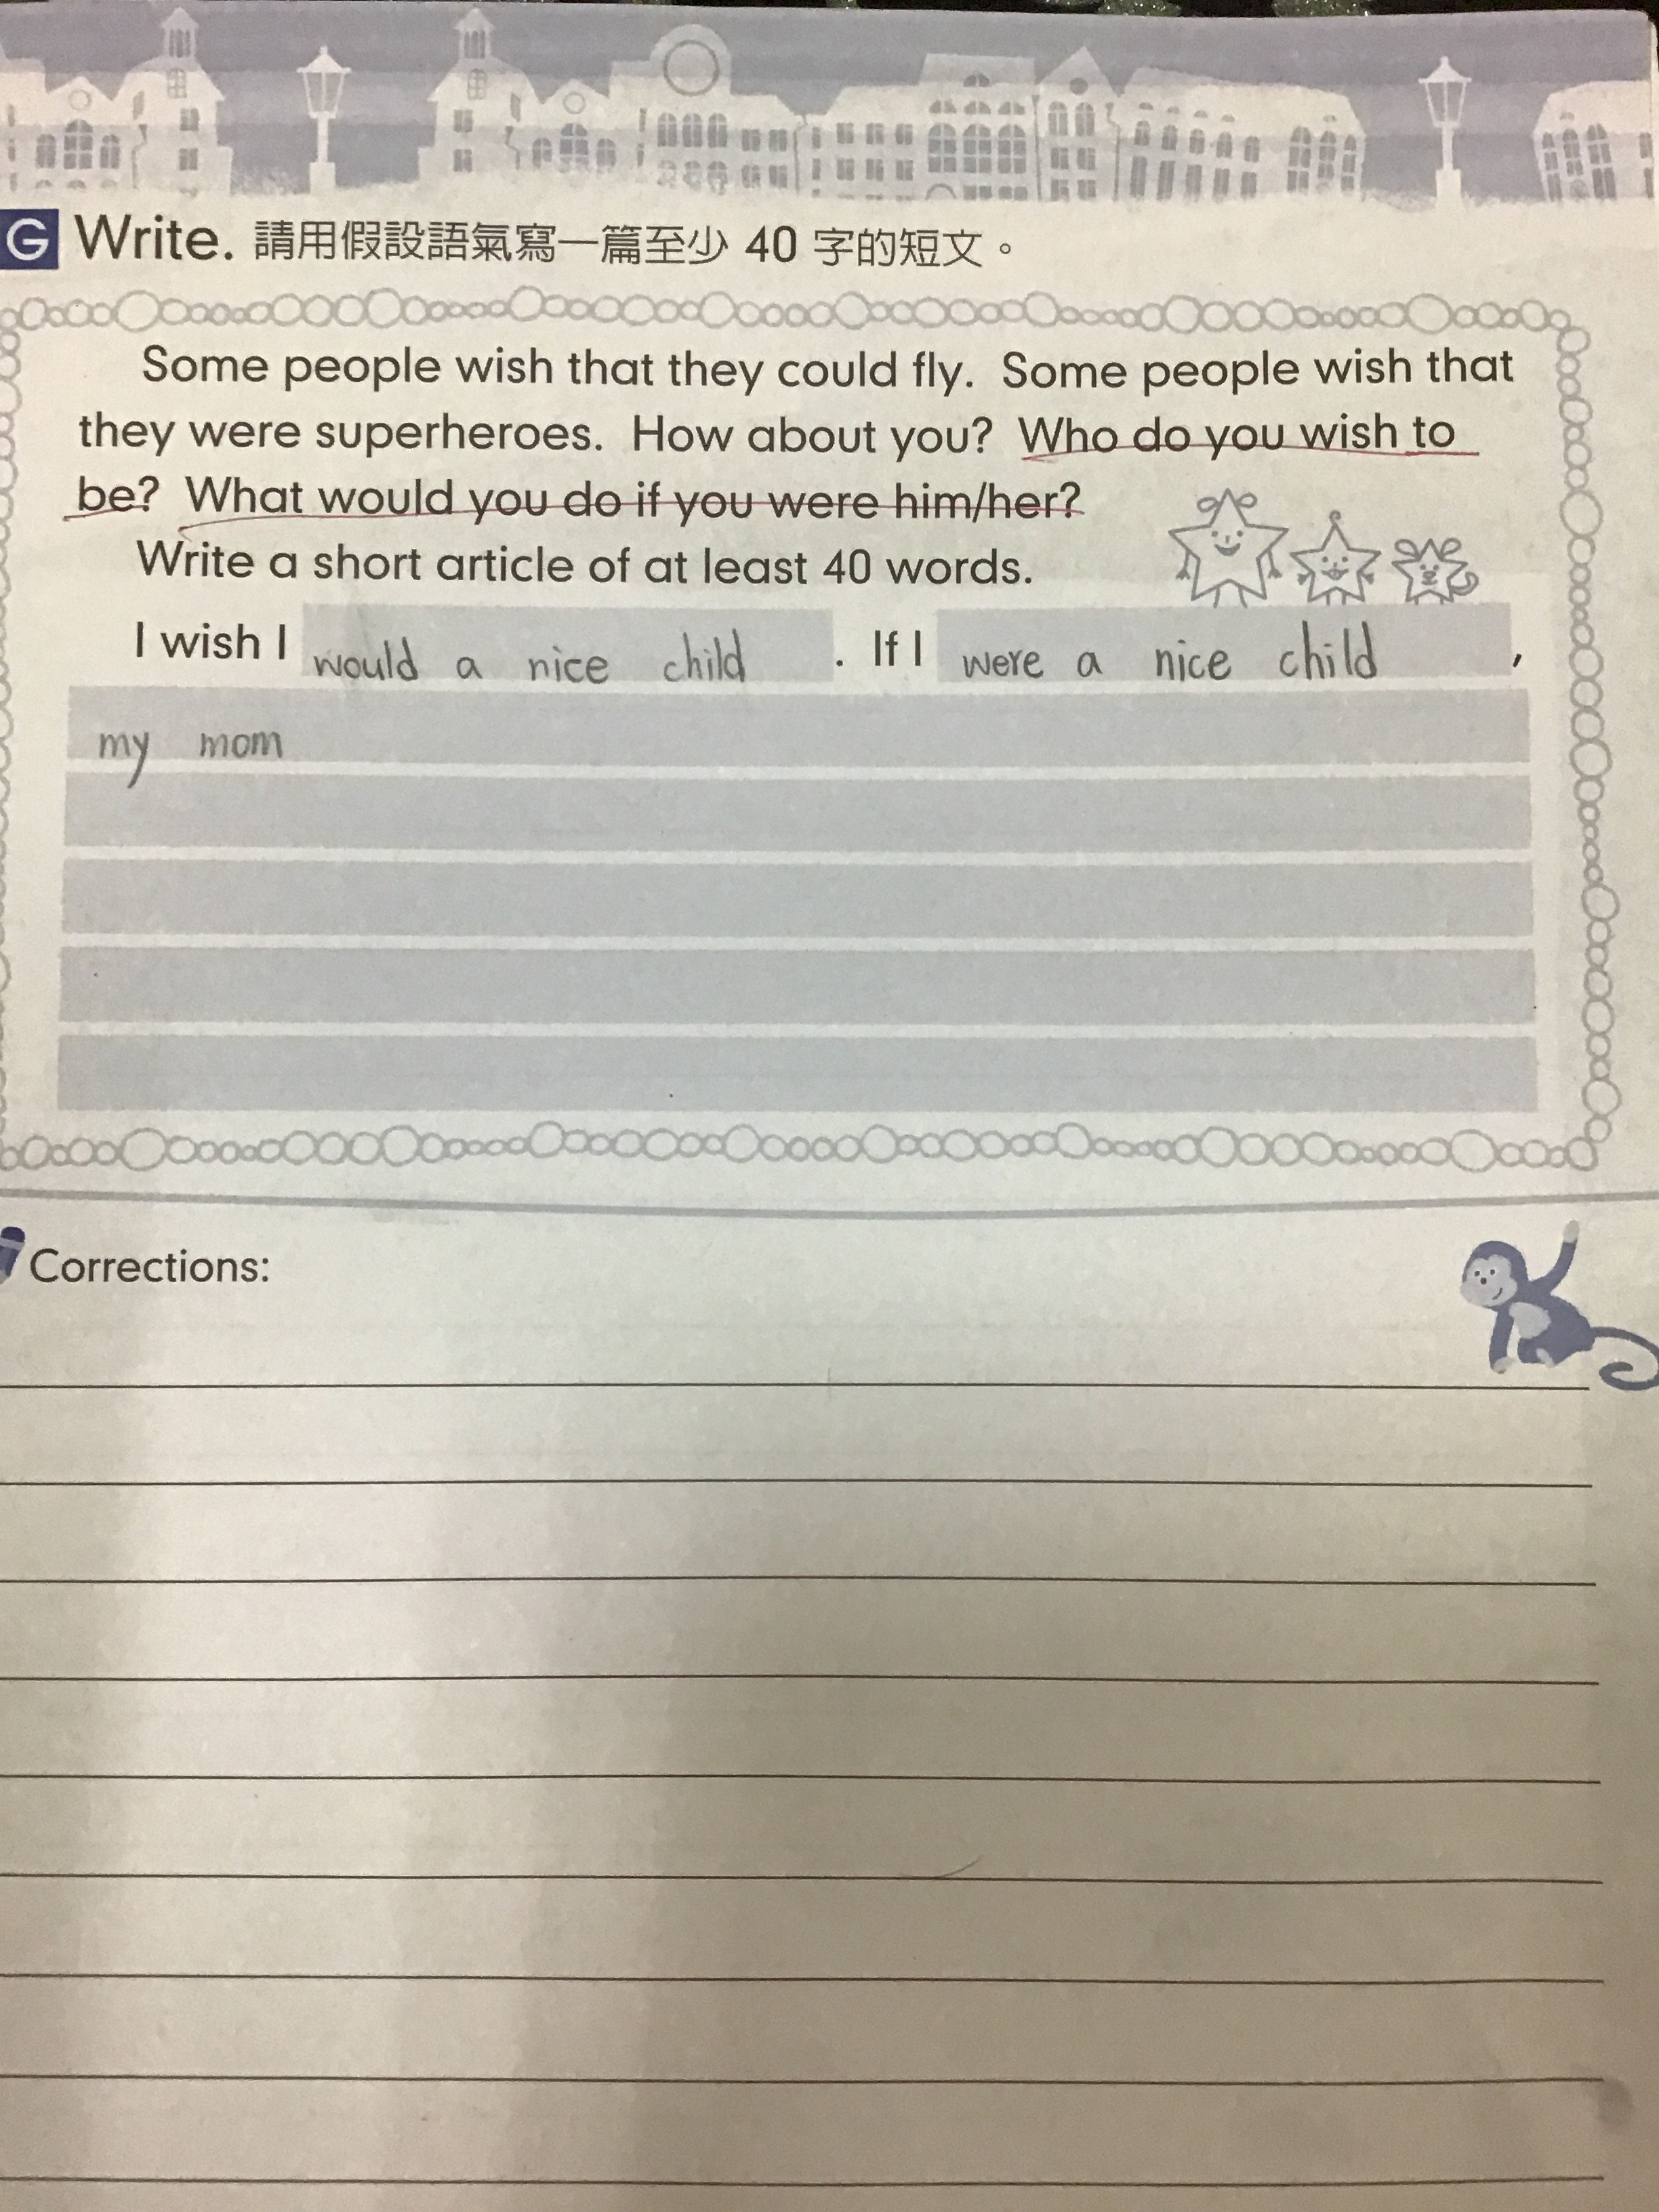 G Write. 請用假設語氣寫一篇至少 40 字的短文。
Some people wish that they could fly. Some people wish that
they were superheroes. How about you? Who do you wish to
be? What would you do if you were him/her?
Write a short article of at least 40 words.
I wish I would a nice child . If I were a nice child ,
my mom
Corrections: